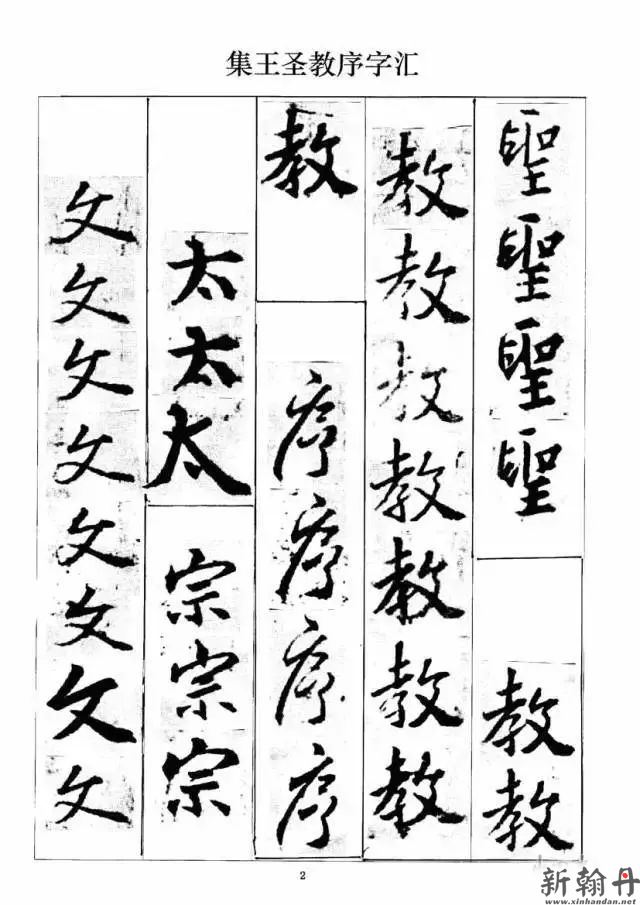 集王圣教序字汇
聖聖聖聖教教
教教教教教教教
教序序序序
太太太宗宗宗
文文文文文文文文
2
新翰丹
www.xinhandan.net